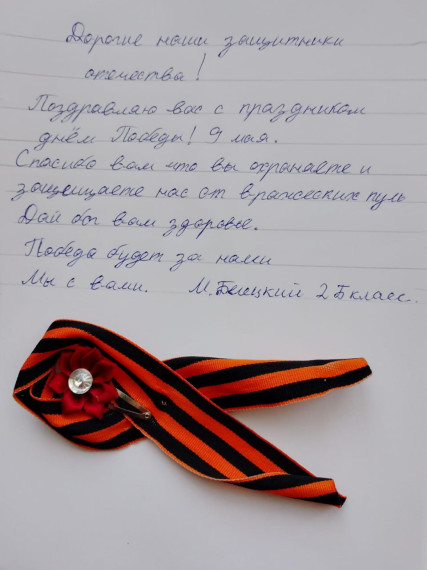 Дорогие наши защитники
отечества!
Поздравляю вас с праздником
днём Победы! 9 мая.
Спасибо вам что вы охраняете и
защищаете нас от вражеских пуль
Дай бог вам здоровье.
Победа будет за нами
Мы с вами. М. 2 Б класс.